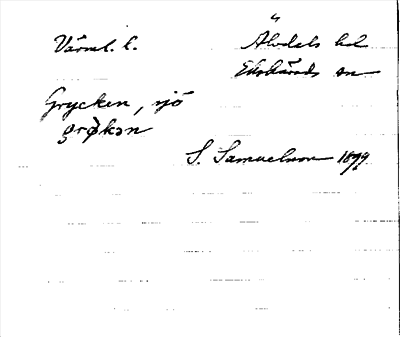 Värml. l. Älvdals hd
Ekshärads sn
Grycken, sjö
grø̀kən
S. Samuelsson 1899